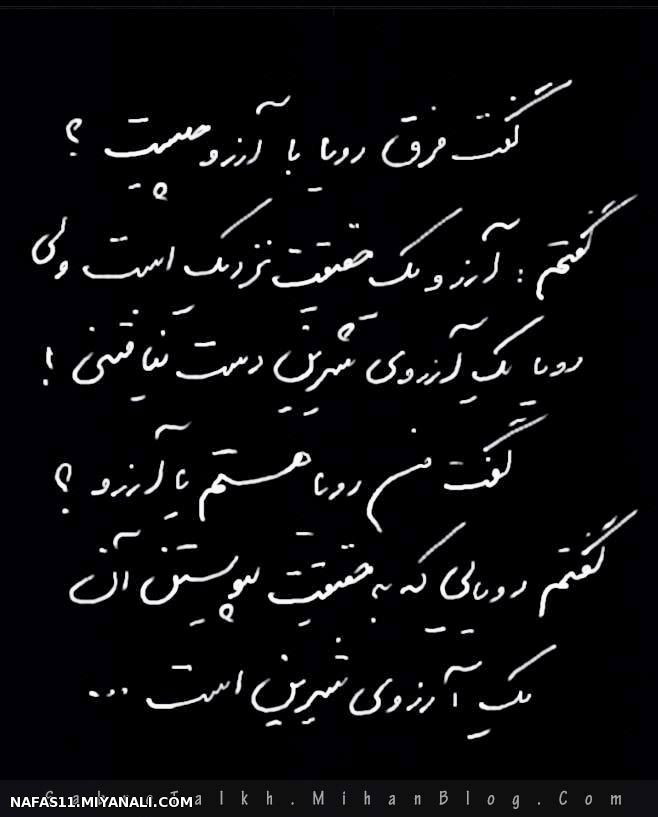 گفت فرق رویا با آرزو چیست ؟
گفتم : آرزو یک حقیقت نزدیک است ولی
رویا یک آرزوی شیرین دست نیافتنی !
گفت من رویا هستم یا آرزو ؟
گفتم رویایی که به حقیقت پیوستن آن
یک آرزوی شیرین است ...
NAFAS11.MIYANALI.COM
Talkh.MihanBlog.Com